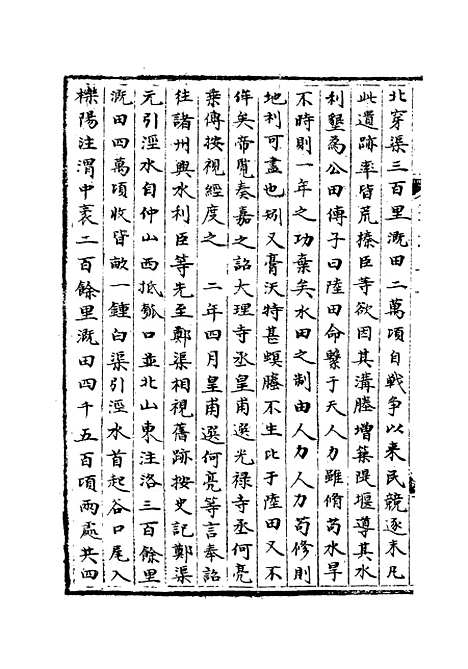 北穿渠三百里溉田二萬頃自戰爭以來民競逐末凡
此遺跡率皆荒榛臣等欲因其溝塍增築隄堰導其水
利墾為公田傅子曰陸田命繫于天人力雖脩茍水旱
不時則一年之功棄矣水田之制由人力人力茍修則
地利可盡也矧又膏沃特甚螟螣不生比于陸田又不
侔矣帝覧奏嘉之詔大理寺丞皇甫選光禄寺丞何亮
乗傳按視經度之　二年四月皇甫選何亮等言奉詔
往諸州興水利臣等先至鄭渠相視舊跡按史記鄭渠
元引涇水自仲山西抵瓠口並北山東注洛三百餘里
溉田四萬頃收皆畝一鍾白渠引涇水首起谷口尾入
櫟陽注渭中袤二百餘里溉田四千五百頃兩處共四